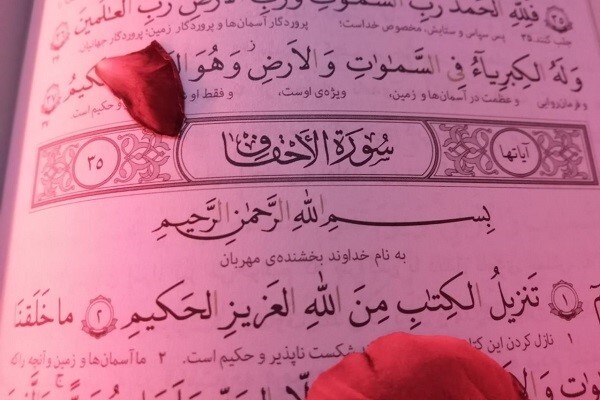 فَلِلَّهِ الحَمدُ رَبِّ السَّمٰوٰتِ وَرَبِّ الاَرضِ رَبِّ العٰلَمينَ ٣٦
جلب کنند. ٣٥ پس سپاس و ستایش، مخصوص خداست؛ پروردگار آسمان‌ها و پروردگار زمین؛ پروردگار جهانیان
وَلَهُ الكِبرِياءُ فِي السَّمٰوٰتِ وَالاَرضِ وَهُوَ الحَكيمُ ٣٧
و فرمان‌روایی و عظمت در آسمان‌ها و زمین، ویژه‌ی اوست، و فقط او و حکیم است.
آیاتها سُورَةُ الأَحْقَاف ٣٥
بِسمِ اللهِ الرَّحمٰنِ الرَّحيمِ
به نام خداوند بخشنده‌ی مهربان
١ تَنزيلُ الكِتٰبِ مِنَ اللهِ العَزيزِ الحَكيمِ ٢ ما خَلَقنَا
١ نازل کردن این شکست ناپذیر و حکیم است. ٢ ما آسمان‌ها و زمین و آنچه را که